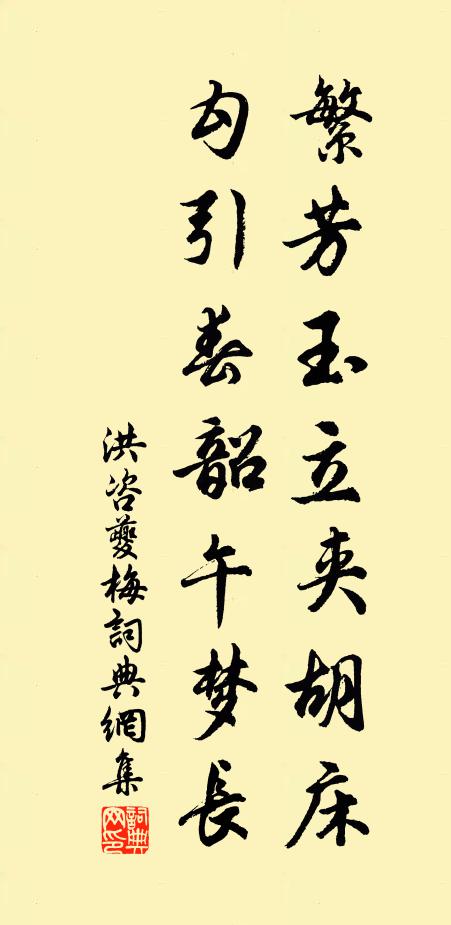 繁芳玉立夹胡床
勾引春韶午梦長
洪咨夔梅詞典網集
詞典網印